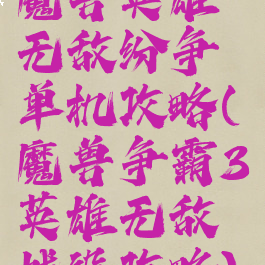 魔兽英雄
无敌纷争
单机攻略(
魔兽争霸3
英雄无敌